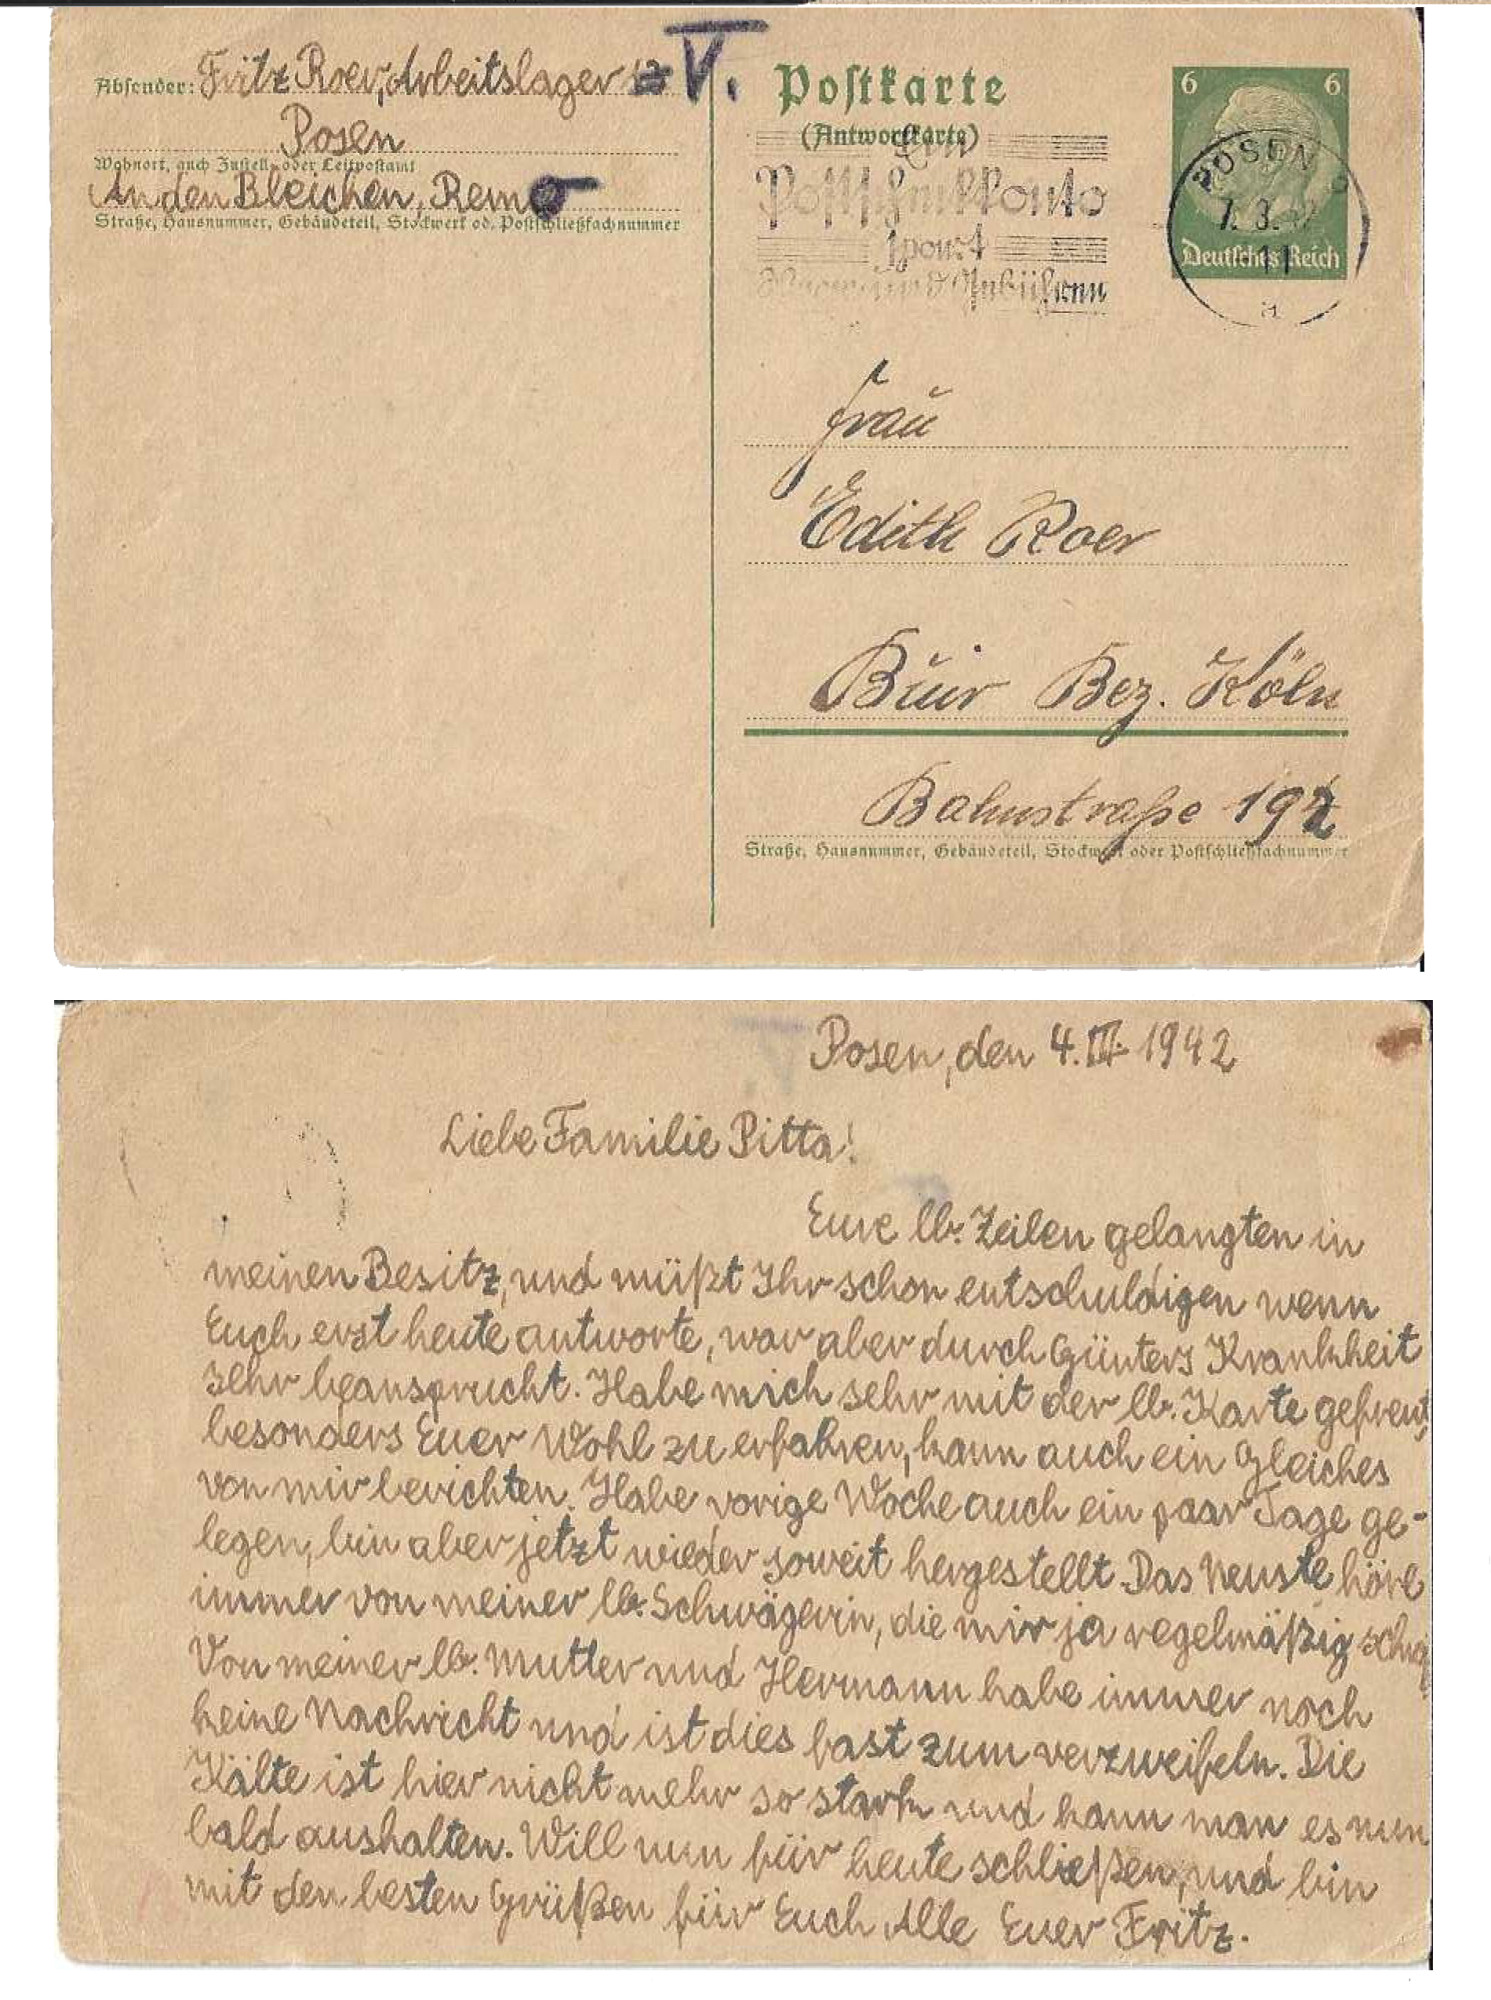 Absender: Fritz Roer, Arbeitslager
V.
Posen
Wohnort, auch Zustell- oder Leitpostamt
An den Bleichen, Remo
Straße, Hausnummer, Gebäudeteil, Stockwerk od. Postschließfachnummer
Postkarte
(Antwortkarte)
Ein
Postscheckkonto
spart
Wege und Gebühren
6 6
Deutsches Reich
POSEN
7. 3. 42
11
Frau
Edith Roer
Buir Bez. Köln
Bahnstraße 192
Straße, Hausnummer, Gebäudeteil, Stockwerk oder Postschließfachnummer
Posen, den 4. III. 1942
Liebe Familie Pitta!
Eure lb. Zeilen gelangten in
meinen Besitz, und müßt Ihr schon entschuldigen wenn
Euch erst heute antworte, war aber durch Günters Krankheit
sehr beansprucht. Habe mich sehr mit der lb. Karte gefreut,
besonders Euer Wohl zu erfahren, kann auch ein Gleiches
von mir berichten. Habe vorige Woche auch ein paar Tage ge-
legen, bin aber jetzt wieder soweit hergestellt. Das Neuste höre
immer von meiner lb. Schwägerin, die mir ja regelmäßig
Von meiner lb. Mutter und Hermann habe immer noch
keine Nachricht und ist dies fast zum verzweifeln. Die
Kälte ist hier nicht mehr so stark und kann man es nun
bald aushalten. Will nun für heute schließen, und bin
mit den besten Grüßen für Euch Alle Euer Fritz.